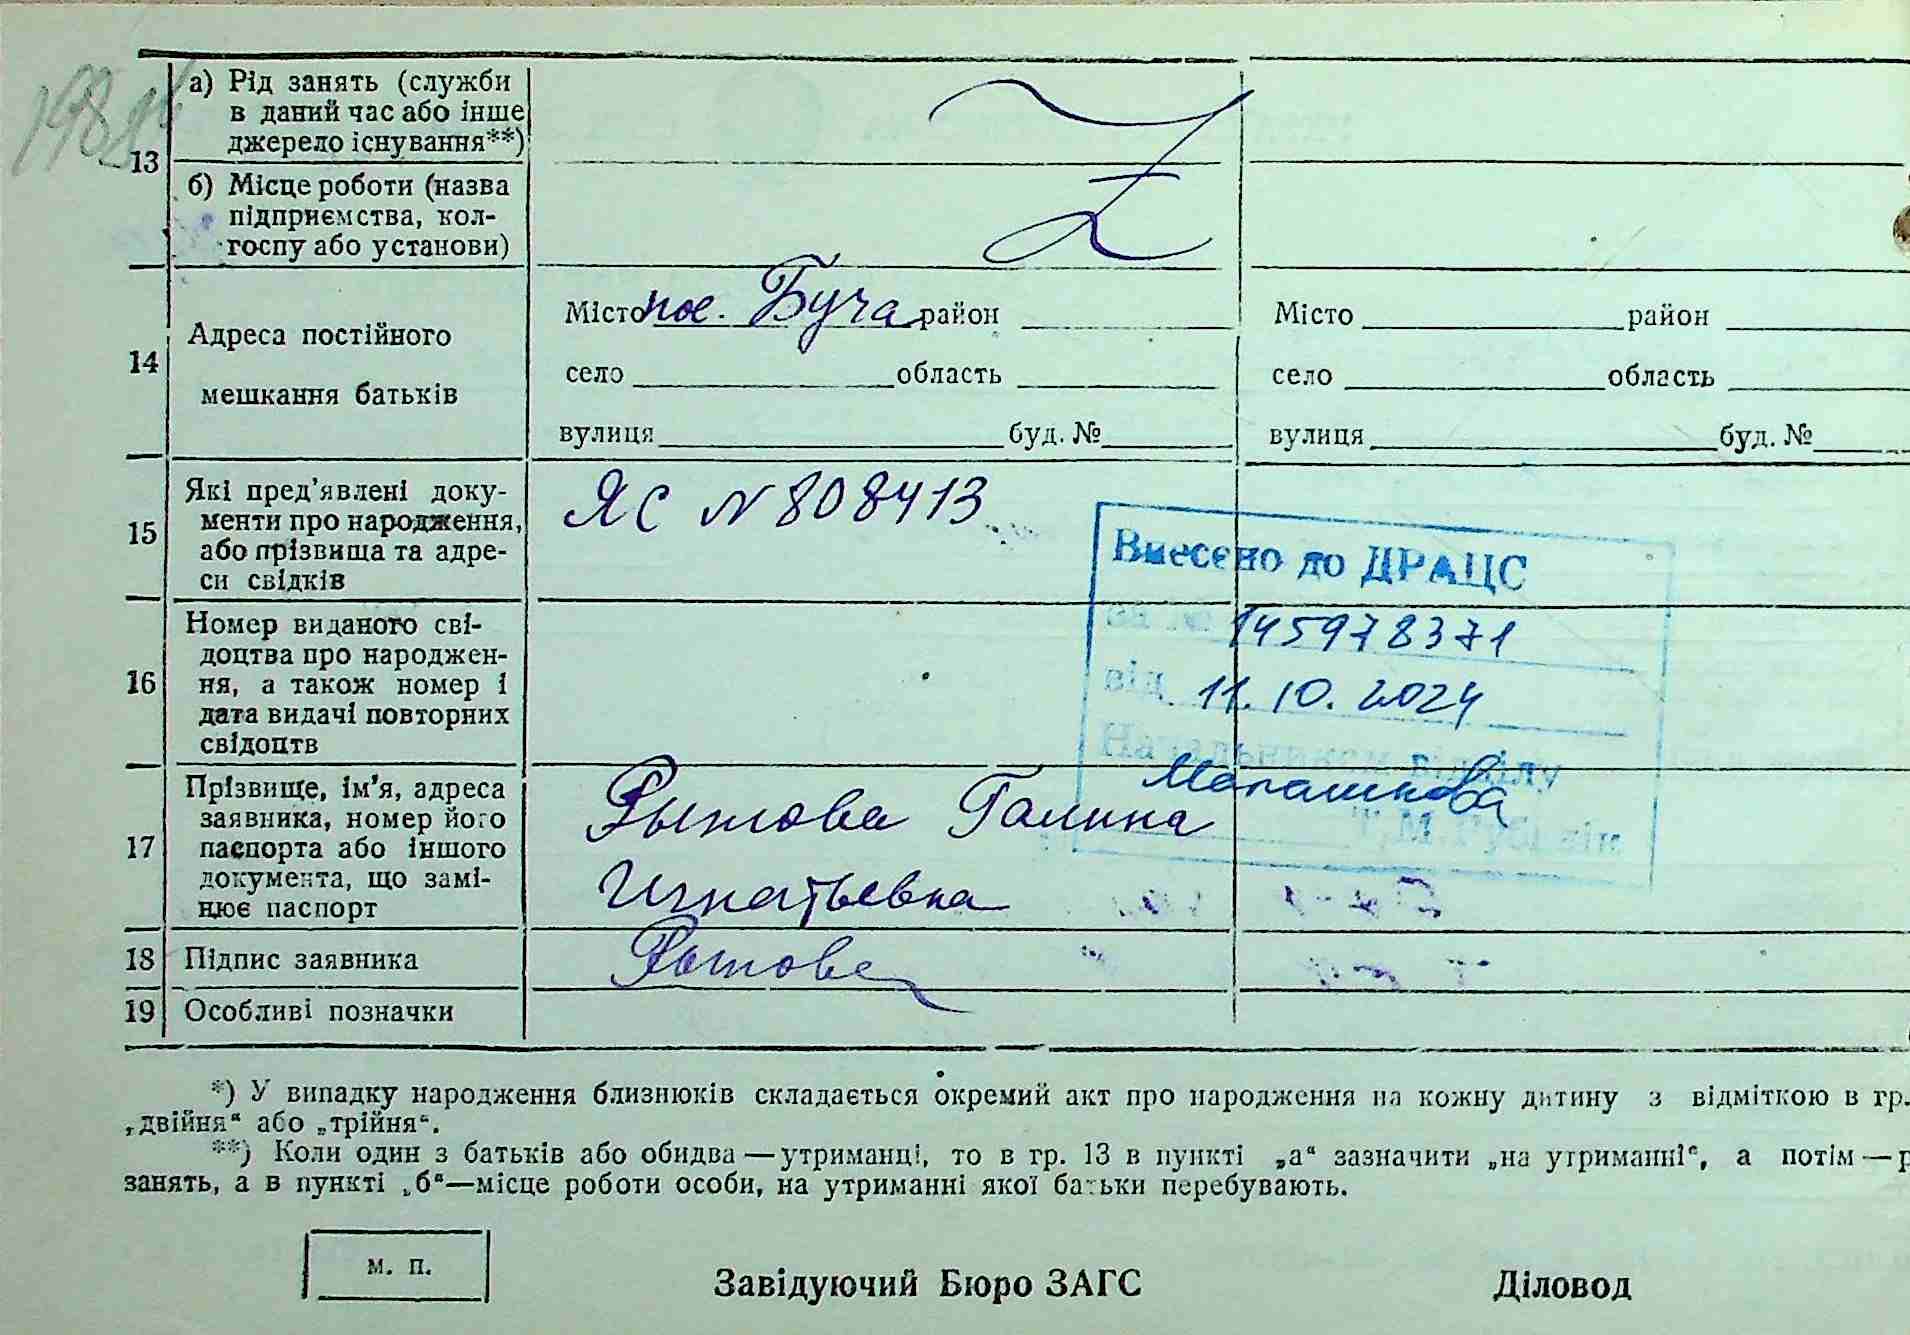 а) Рід занять (служби
в даний час або інше
джерело існування**)
13
б) Місце роботи (назва
підприємства, кол-
госпу або установи)
14
Адреса постійного
мешкання батьків
Місто пос. Буча район
село область
вулиця буд. №
Місто район
село область
вулиця буд. №
15
Які пред'явлені доку-
менти про народження,
або прізвища та адре-
си свідків
ЯС N 808413
Внесено до ДРАЦС
за № 145978371
від 11.10.2024
Начальником відділу
16
Номер виданого сві-
доцтва про народжен-
ня, а також номер і
дата видачі повторних
свідоцтв
17
Прізвище, ім'я, адреса
заявника, номер його
паспорта або іншого
документа, що замі-
нює паспорт
Галина
Игнатьевна
18 Підпис заявника
19 Особливі позначки
*) У випадку народження близнюків складається окремий акт про народження на кожну дитину з відміткою в гр.
„двійня“ або „трійня“.
**) Коли один з батьків або обидва — утриманці, то в гр. 13 в пункті „а“ зазначити „на утриманні“, а потім — р
занять, а в пункті „б“—місце роботи особи, на утриманні якої батьки перебувають.
м. п.
Завідуючий Бюро ЗАГС Діловод